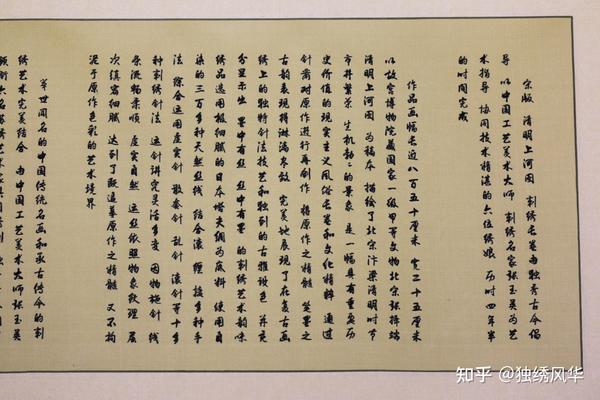 宗版 清明上河图 刺绣长卷由独秀古今倡
导 以中国工艺美术大师 刺绣名家张玉英为艺
术指导 协同技术精湛的六位绣娘 历时四年半
的时间完成
作品画幅长近八百五十厘米 宽二十五厘米
以故宫博物院藏国家一级甲等文物北宋张择端
清明上河图 为稿本 描绘了北宋汴梁清明时节
市井繁荣 生机勃勃的景象 是一幅具有重要历
史价值的现实主义风俗长卷和文化精粹 通过
针黹对原作进行再创作 将原作之精髓 笔墨之
古韵表现得淋漓尽致 完美地展现了在复古画
绣上的独特针法技艺和独到的古雅设色 并充
分显示出 墨中有丝 丝中有墨 的刺绣艺术韵味
绣品选用极细腻的日本塔夫绸为底料 使用自
染的三百多种天然丝线 结合滚 缠 接多种手
法 综合运用虚实针 散套针 乱针 滚针等十多
种刺绣针法 运针讲究灵活多变 因物施针 线
条流畅柔顺 虚实自然 运丝依照物象纹理 层
次缜密细腻 达到了既追摹原作之精髓 又不拘
泥于原作色彩的艺术境界
举世闻名的中国传统名画和承古传今的刺
绣艺术完美结合 由中国工艺美术大师张玉英
知乎 @独绣风华